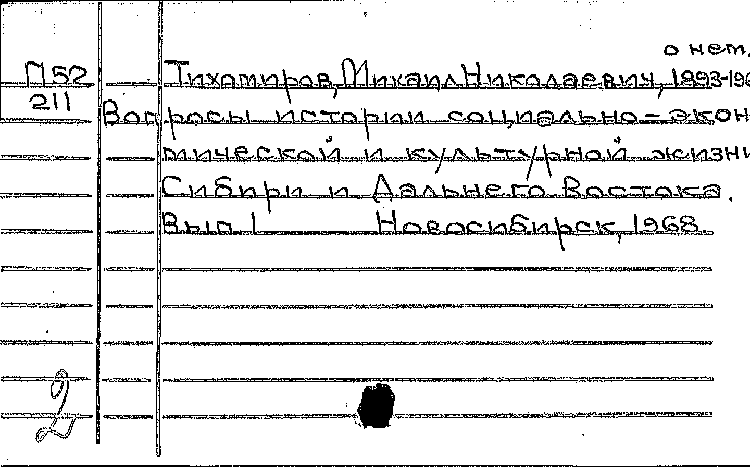 о нем.
П52 Тихомиров, Михаил Николаевич, 1893-196
211
Вопросы истории социально-экон
мической и культурной жизни
Сибири и Дальнего Востока.
Вып 1 Новосибирск, 1968
2